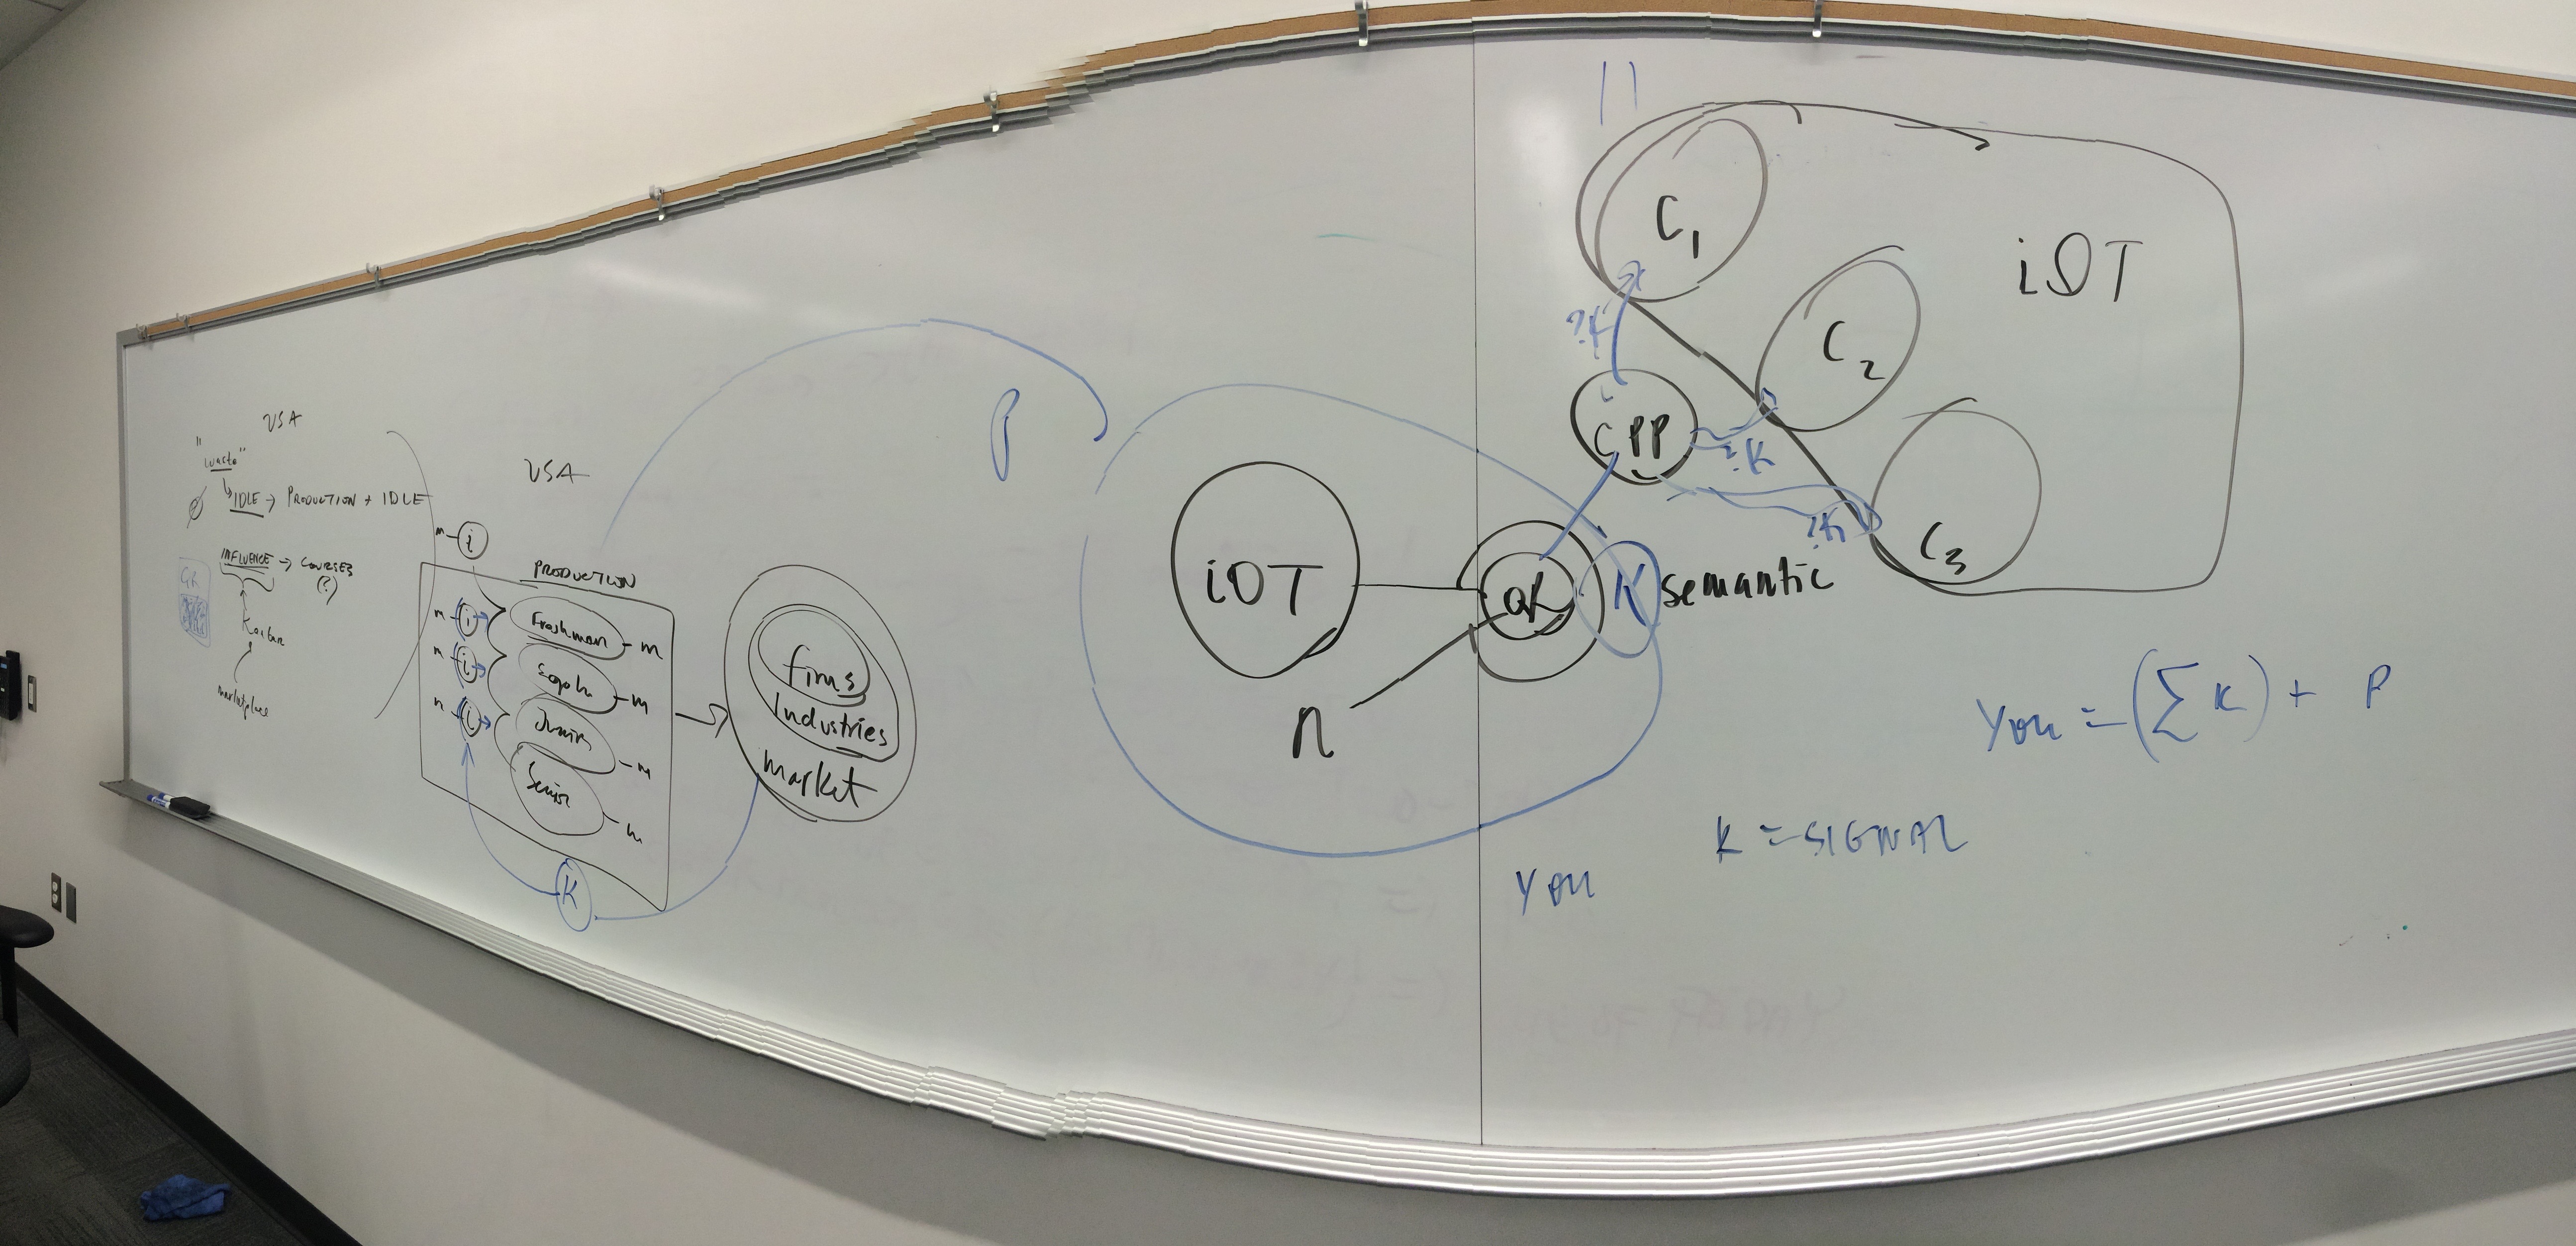 USA
"Waste"
IDLE → PRODUCTION + IDLE
INFLUENCE → COURSES
(?)
marketplace
USA
m - i
PRODUCTION
m - i → Freshman - m
m - i → Soph - m
n - i → Junior - m
Senior - m
K
firms
Industries
market
P
iOT
n
K semantic
YOU
C1
C2
C3
iOT
CPP
?K
?K
?K
You = (∑ K) + P
K = SIGNAL